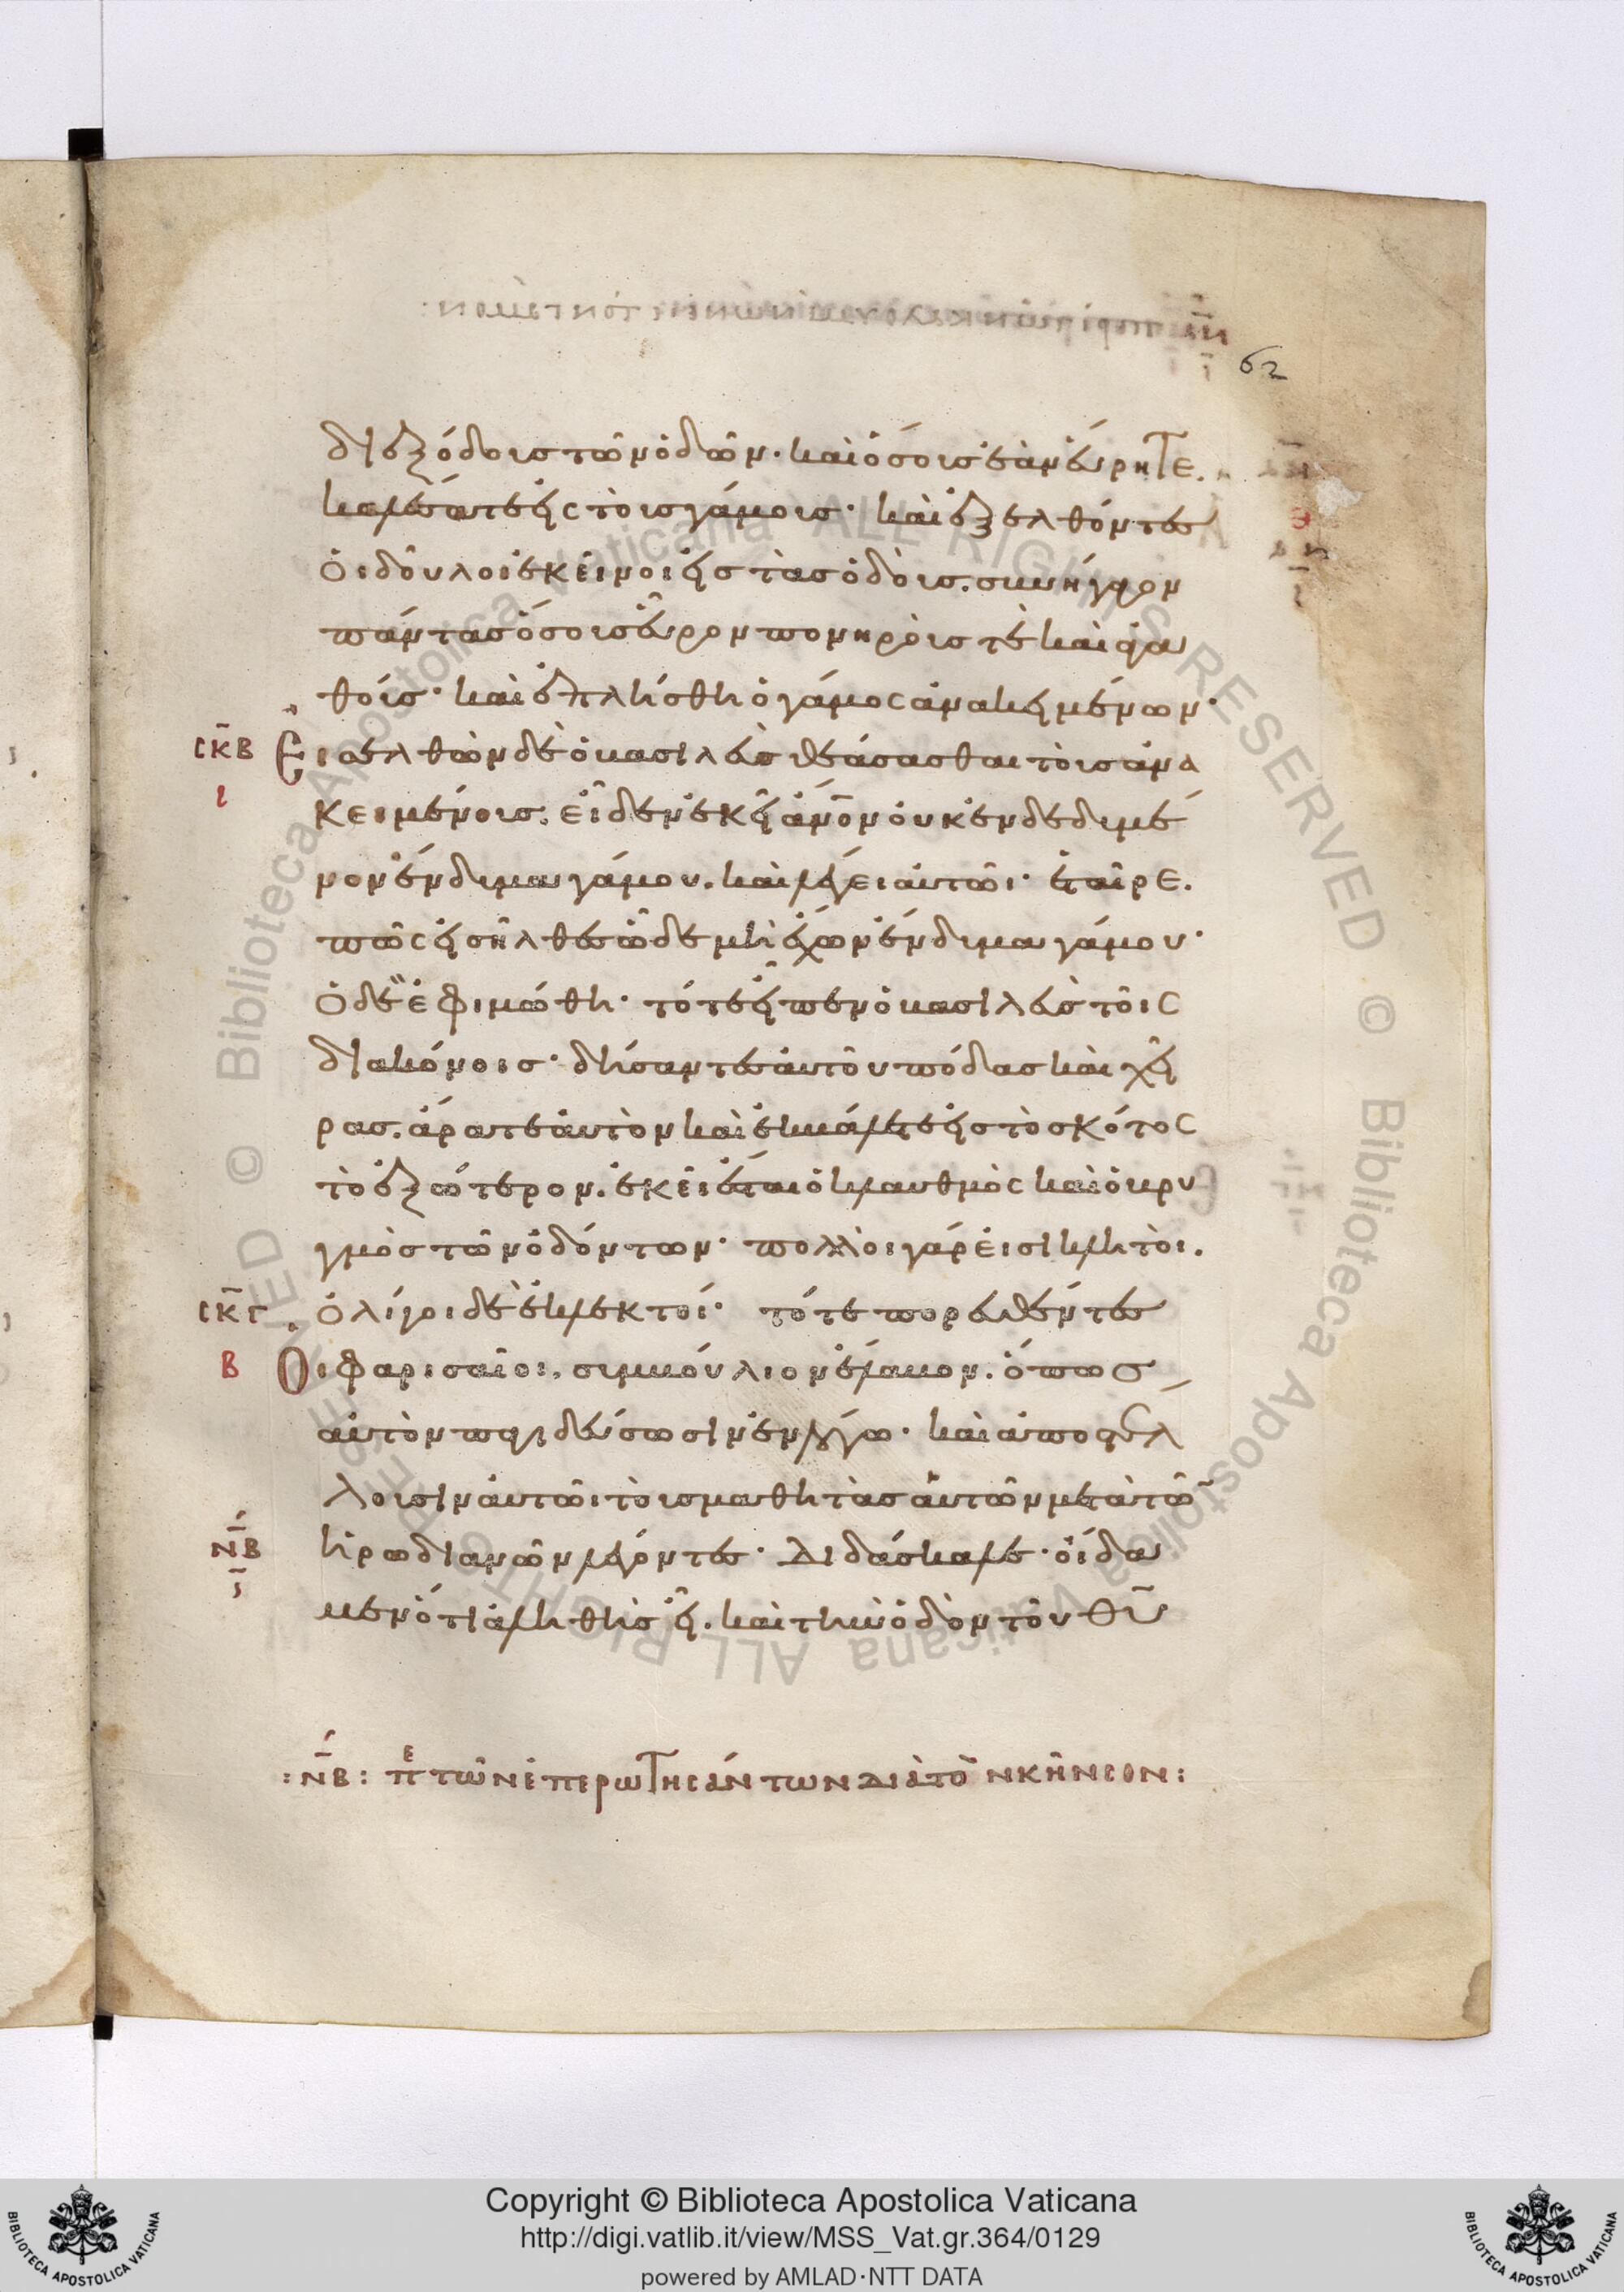 62
διεξόδους τῶν ὁδῶν· καὶ ὅσους ἐὰν εὕρητε.
καλέσατε εἰς τοὺς γάμους· καὶ ἐξελθόντες
οἱ δοῦλοι ἐκεῖνοι εἰς τὰς ὁδοὺς. συνήγαγον
πάντας ὅσους εὗρον πονηροὺς τὲ καὶ ἀγα
θούς· καὶ ἐπλήσθη ὁ γάμος ἀνακειμένων·
σκβ Εἰσελθὼν δὲ ὁ βασιλεὺς θεάσασθαι τοὺς ἀνα
ι κειμένους. εἶδεν ἐκεῖ ἄνον οὐκ ἐνδεδυμέ
νον ἔνδυμα γάμου. καὶ λέγει αὐτῶι· ἑταῖρε.
πῶς εἰσῆλθες ὧδε μὴ ἔχων ἔνδυμα γάμου·
Ὁ δὲ ἐφιμώθη· τότε εἶπεν ὁ βασιλεὺς τοῖς
διακόνοις· δήσαντες αὐτοῦ πόδας καὶ χεῖ
ρας. ἄρατε αὐτὸν καὶ ἐκβάλετε εἰς τὸ σκότος
τὸ ἐξώτερον. ἐκεῖ ἔσται ὁ κλαυθμὸς καὶ ὁ βρυ
γμὸς τῶν ὀδόντων· πολλοὶ γάρ εἰσι κλητοὶ.
σκγ ὀλίγοι δὲ ἐκλεκτοί· τότε πορευθέντες
β Οἱ φαρισαῖοι, συμβούλιον ἔλαβον. ὅπως
αὐτὸν παγιδεύσωσιν ἐν λόγω· καὶ ἀποστέλ
λουσιν αὐτῶι τοὺς μαθητὰς αὐτῶν μετὰ τῶ
νβ ἡρωδιανῶν λέγοντες· Διδάσκαλε· οἴδα
μεν ὅτι ἀληθὴς εἶ. καὶ τὴν ὁδὸν τοῦ θυ
:νβ: πε τῶν ἐπερωτησάντων διὰ τὸν κῆνσον:
Copyright © Biblioteca Apostolica Vaticana
http://digi.vatlib.it/view/MSS_Vat.gr.364/0129
powered by AMLAD·NTT DATA
BIBLIOTECA APOSTOLICA VATICANA
BIBLIOTECA APOSTOLICA VATICANA
Biblioteca Apostolica Vaticana ALL RIGHTS RESERVED © Biblioteca Apostolica Vaticana ALL RIGHTS RESERVED ©